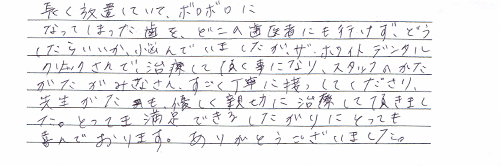 長く放置していて、ボロボロに
なってしまった歯を、どこの歯医者にも行けず、どう
したらいいか、悩んでいましたが、ザ・ホワイトデンタル
クリニックさんで、治療して頂く事になり、スタッフのかた
がたがみなさん、すごく丁寧に接してくださり、
先生がたも、優しく親切に治療して頂きまし
た。とっても満足できるしあがりにとっても
喜んでおります。ありがとうございました。